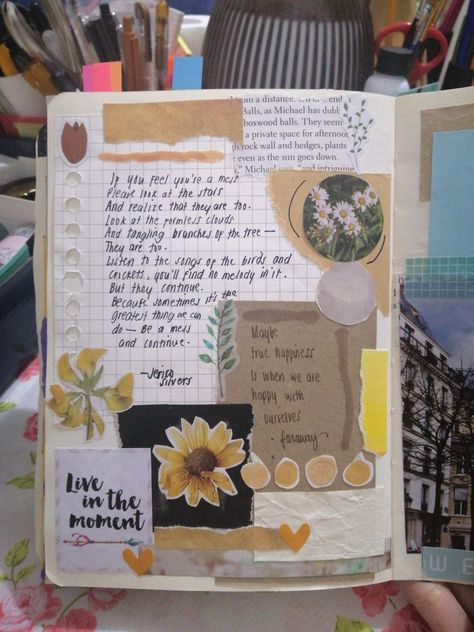 from a distance.
Balls, as Michael has dubb
boxwood balls. They seem
a private space for afternoo
rock wall and hedges, plants
even as the sun goes down.
and intriguing
If you feel you're a mess
Please look at the stars
And realize that they are too.
Look at the formless clouds
And tangling branches of the tree —
They are too.
Listen to the songs of the birds and
crickets, you'll find no melody in it.
But they continue.
Because sometimes it's the
greatest thing we can
do — Be a mess
and continue.
—Jerico
Silvers
Maybe
true happiness
Is when we are
happy with
ourselves
- faraway
Live
in the
moment
W E